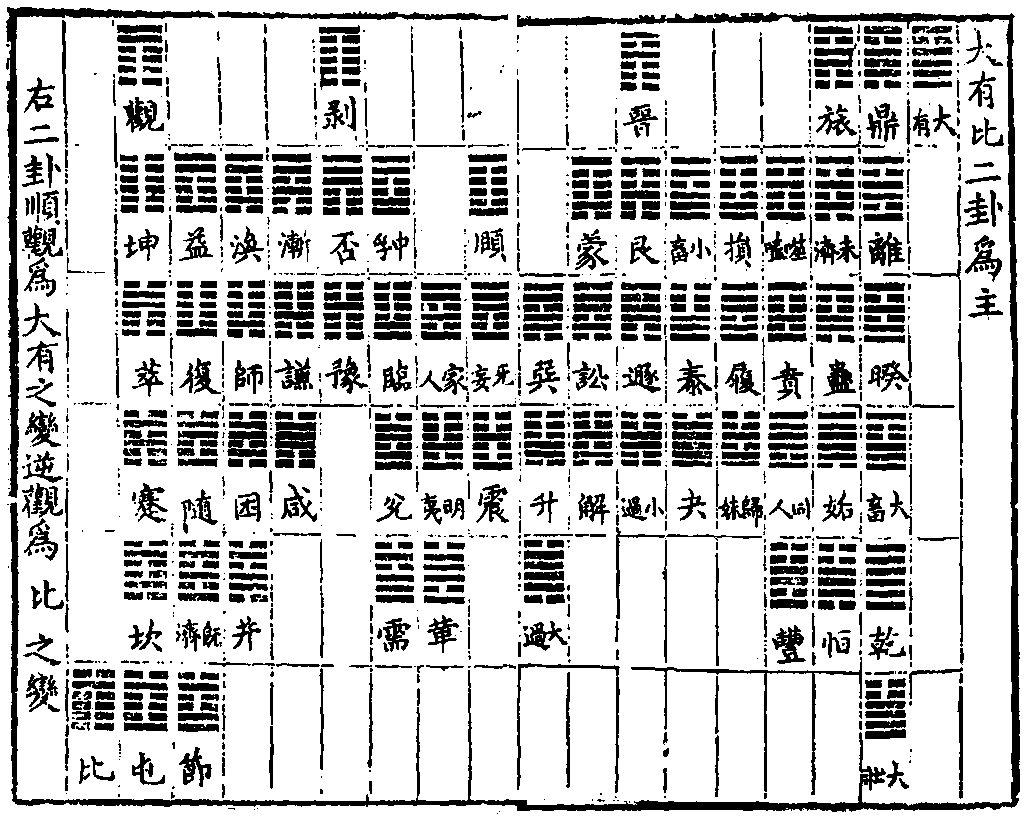 大有比二卦爲主
大有 鼎 旅 晉 剝 觀
離 未濟 噬嗑 損 小畜 艮 蒙 頤 中孚 否 漸 渙 益 坤
睽 蠱 賁 履 泰 遯 訟 巽 无妄 家人 臨 豫 謙 師 復 萃
大畜 姤 同人 歸妹 夬 小過 解 升 震 明夷 兊 咸 困 随 蹇
乾 恒 豐 大過 革 需 井 既濟 坎
大壯 節 屯 比
右二卦順觀爲大有之變逆觀爲比之變